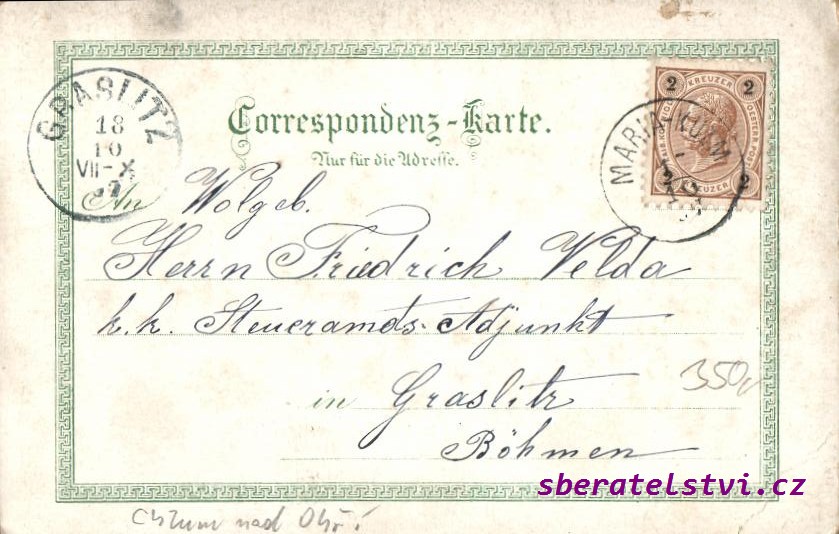 GRASLITZ
18
10
VII-X
Correspondenz-Karte.
Nur für die Adresse.
2 KREUZER 2
2 KREUZER 2
MARIA KULM
An Wolgeb.
Herrn Friedrich Velda
k.k. Steueramts-Adjunkt
in Graslitz
Böhmen
350,-
sberatelstvi.cz
Chlum nad Ohří